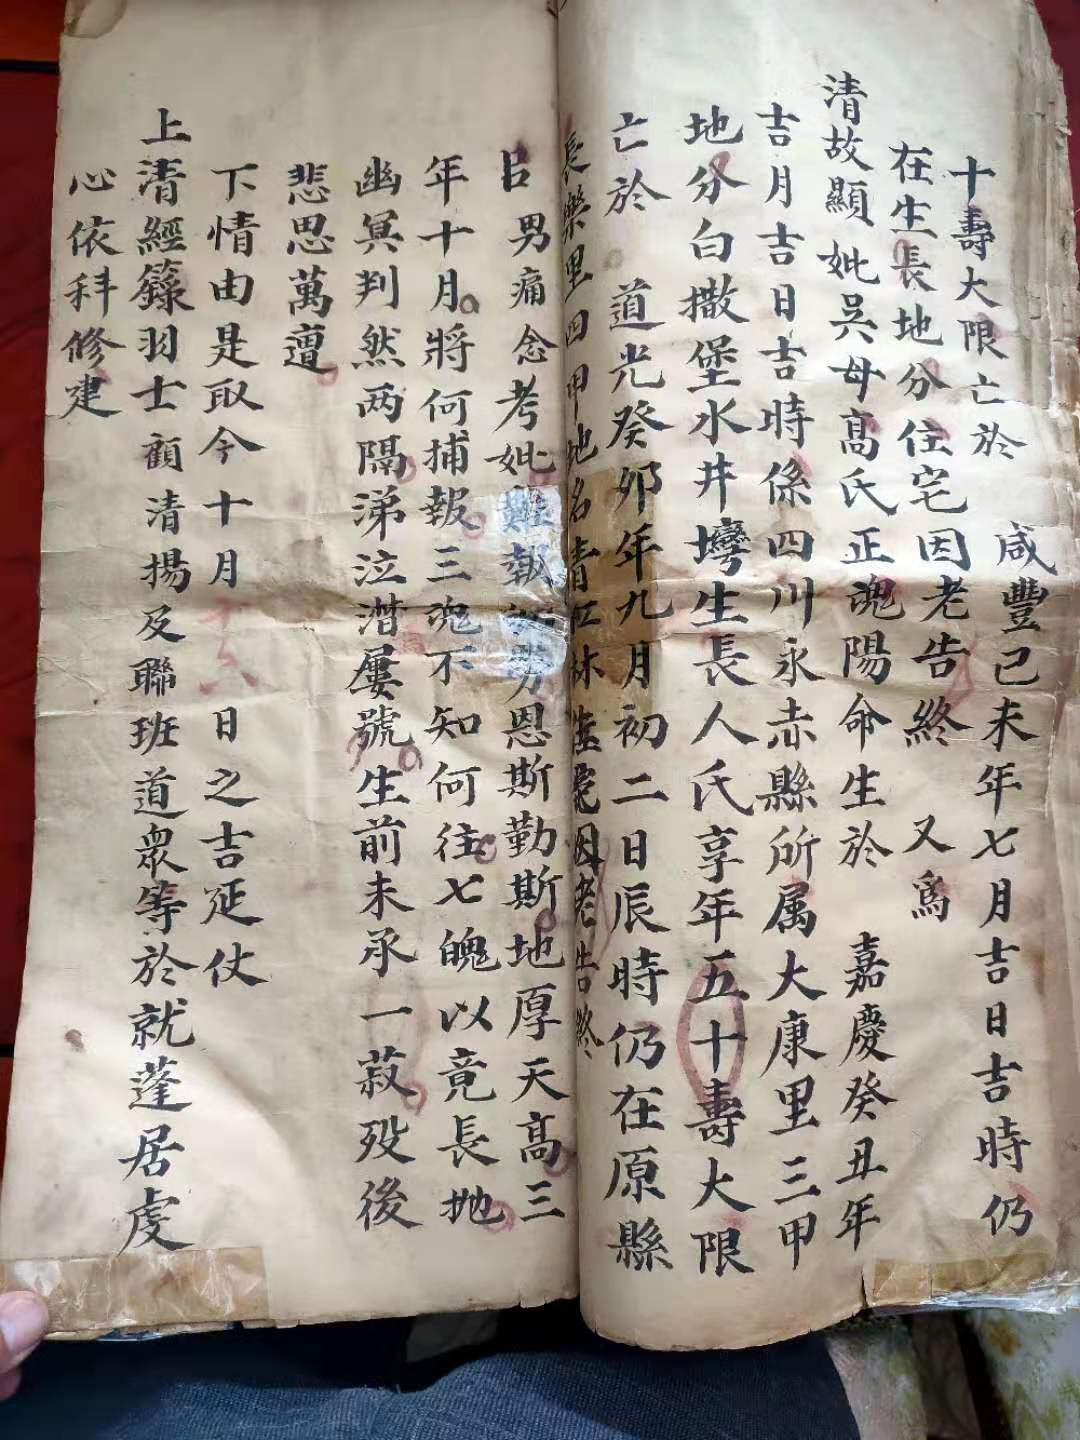 十壽大限亡於 咸豐己未年七月吉日吉時仍
在生長地分住宅因老告終 又為
清故顯妣吳母高氏正魂陽命生於 嘉慶癸丑年
吉月吉日吉時係四川永赤縣所属大康里三甲
地分白撒堡水井塆生長人氏享年五十壽大限
亡於 道光癸卯年九月初二日辰時仍在原縣
長樂里四甲地名青杠林 因老告終
男痛念考妣難報 劳恩斯勤斯地厚天高三
年十月將何捕報三魂不知何往七魄以竟長抛
幽冥判然两隔涕泣潸屢號生前未承一菽殁後
悲思萬遭
下情由是取今十月 日之吉延仗
上清經籙羽士顧清揚及聯班道眾等於就蓬居虔
心依科修建